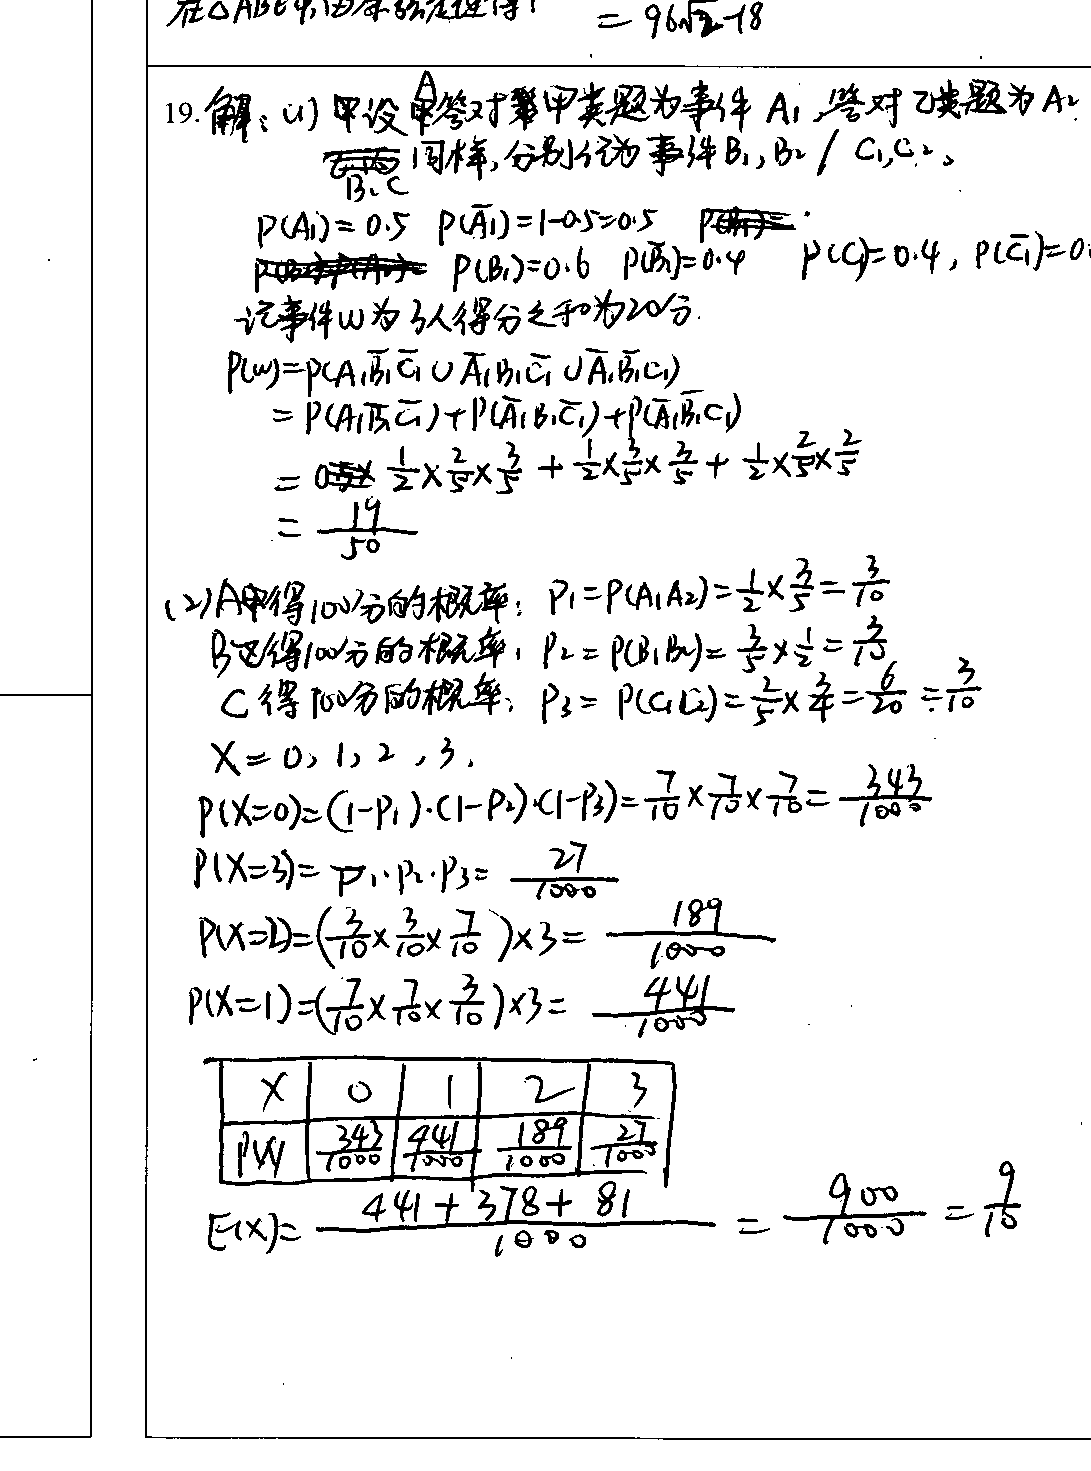 = 96√2-18
19. 解:(1) 设A答对甲类题为事件 A₁,答对乙类题为A₂
B、C 同样,分别为事件B₁,B₂ / C₁,C₂、
P(A₁)=0.5 P(A̅₁)=1-0.5=0.5
P(B₁)=0.6 P(B̅₁)=0.4 P(C₁)=0.4, P(C̅₁)=0
记事件W为3人得分之和为20分.
P(W)=P(A₁B̅₁C̅₁∪A̅₁B₁C̅₁∪A̅₁B̅₁C₁)
=P(A₁B̅₁C̅₁)+P(A̅₁B₁C̅₁)+P(A̅₁B̅₁C₁)
= 1/2×2/5×3/5+1/2×3/5×3/5+1/2×2/5×2/5
= 19/50
(2)A得100分的概率:P₁=P(A₁A₂)=1/2×3/5=3/10
B得100分的概率:P₂=P(B₁B₂)=3/5×1/2=3/10
C得100分的概率:P₃=P(C₁C₂)=2/5×3/4=6/20=3/10
X=0,1,2,3.
P(X=0)=(1-P₁)·(1-P₂)·(1-P₃)=7/10×7/10×7/10=343/1000
P(X=3)=P₁·P₂·P₃=27/1000
P(X=2)=(3/10×3/10×7/10)×3=189/1000
P(X=1)=(7/10×7/10×3/10)×3=441/1000
X 0 1 2 3
P(X) 343/1000 441/1000 189/1000 27/1000
E(X)=441+378+81/1000=900/1000=9/10